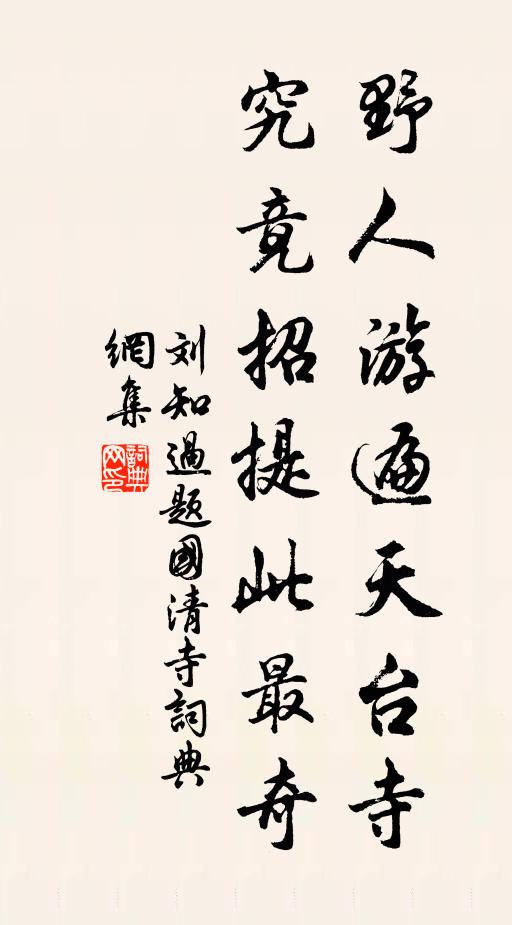 野人游遍天台寺
究竟招提此最奇
刘知過题國清寺詞典
網集
詞典
网印